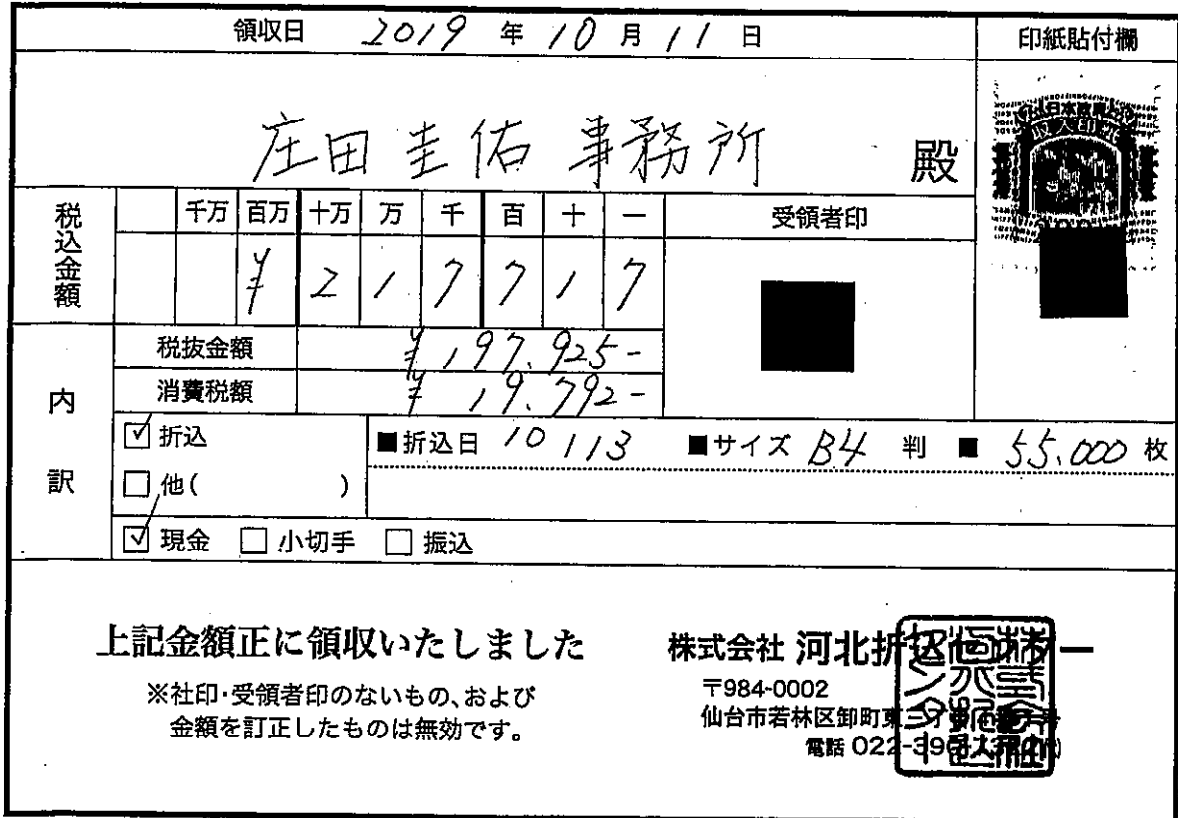 領収日 2019 年 10 月 11 日
印紙貼付欄
庄田圭佑事務所 殿
税込金額 千万 百万 十万 万 千 百 十 一
¥ 2 1 7 7 1 7
受領者印
内訳
税抜金額 ¥197.925-
消費税額 ¥19.792-
☑ 折込 ■折込日 10/13 ■サイズ B4 判 ■ 55,000 枚
☐ 他( )
☑ 現金 ☐ 小切手 ☐ 振込
上記金額正に領収いたしました
※社印・受領者印のないもの、および
金額を訂正したものは無効です。
株式会社 河北折込センター
〒984-0002
仙台市若林区卸町東
電話 022-390